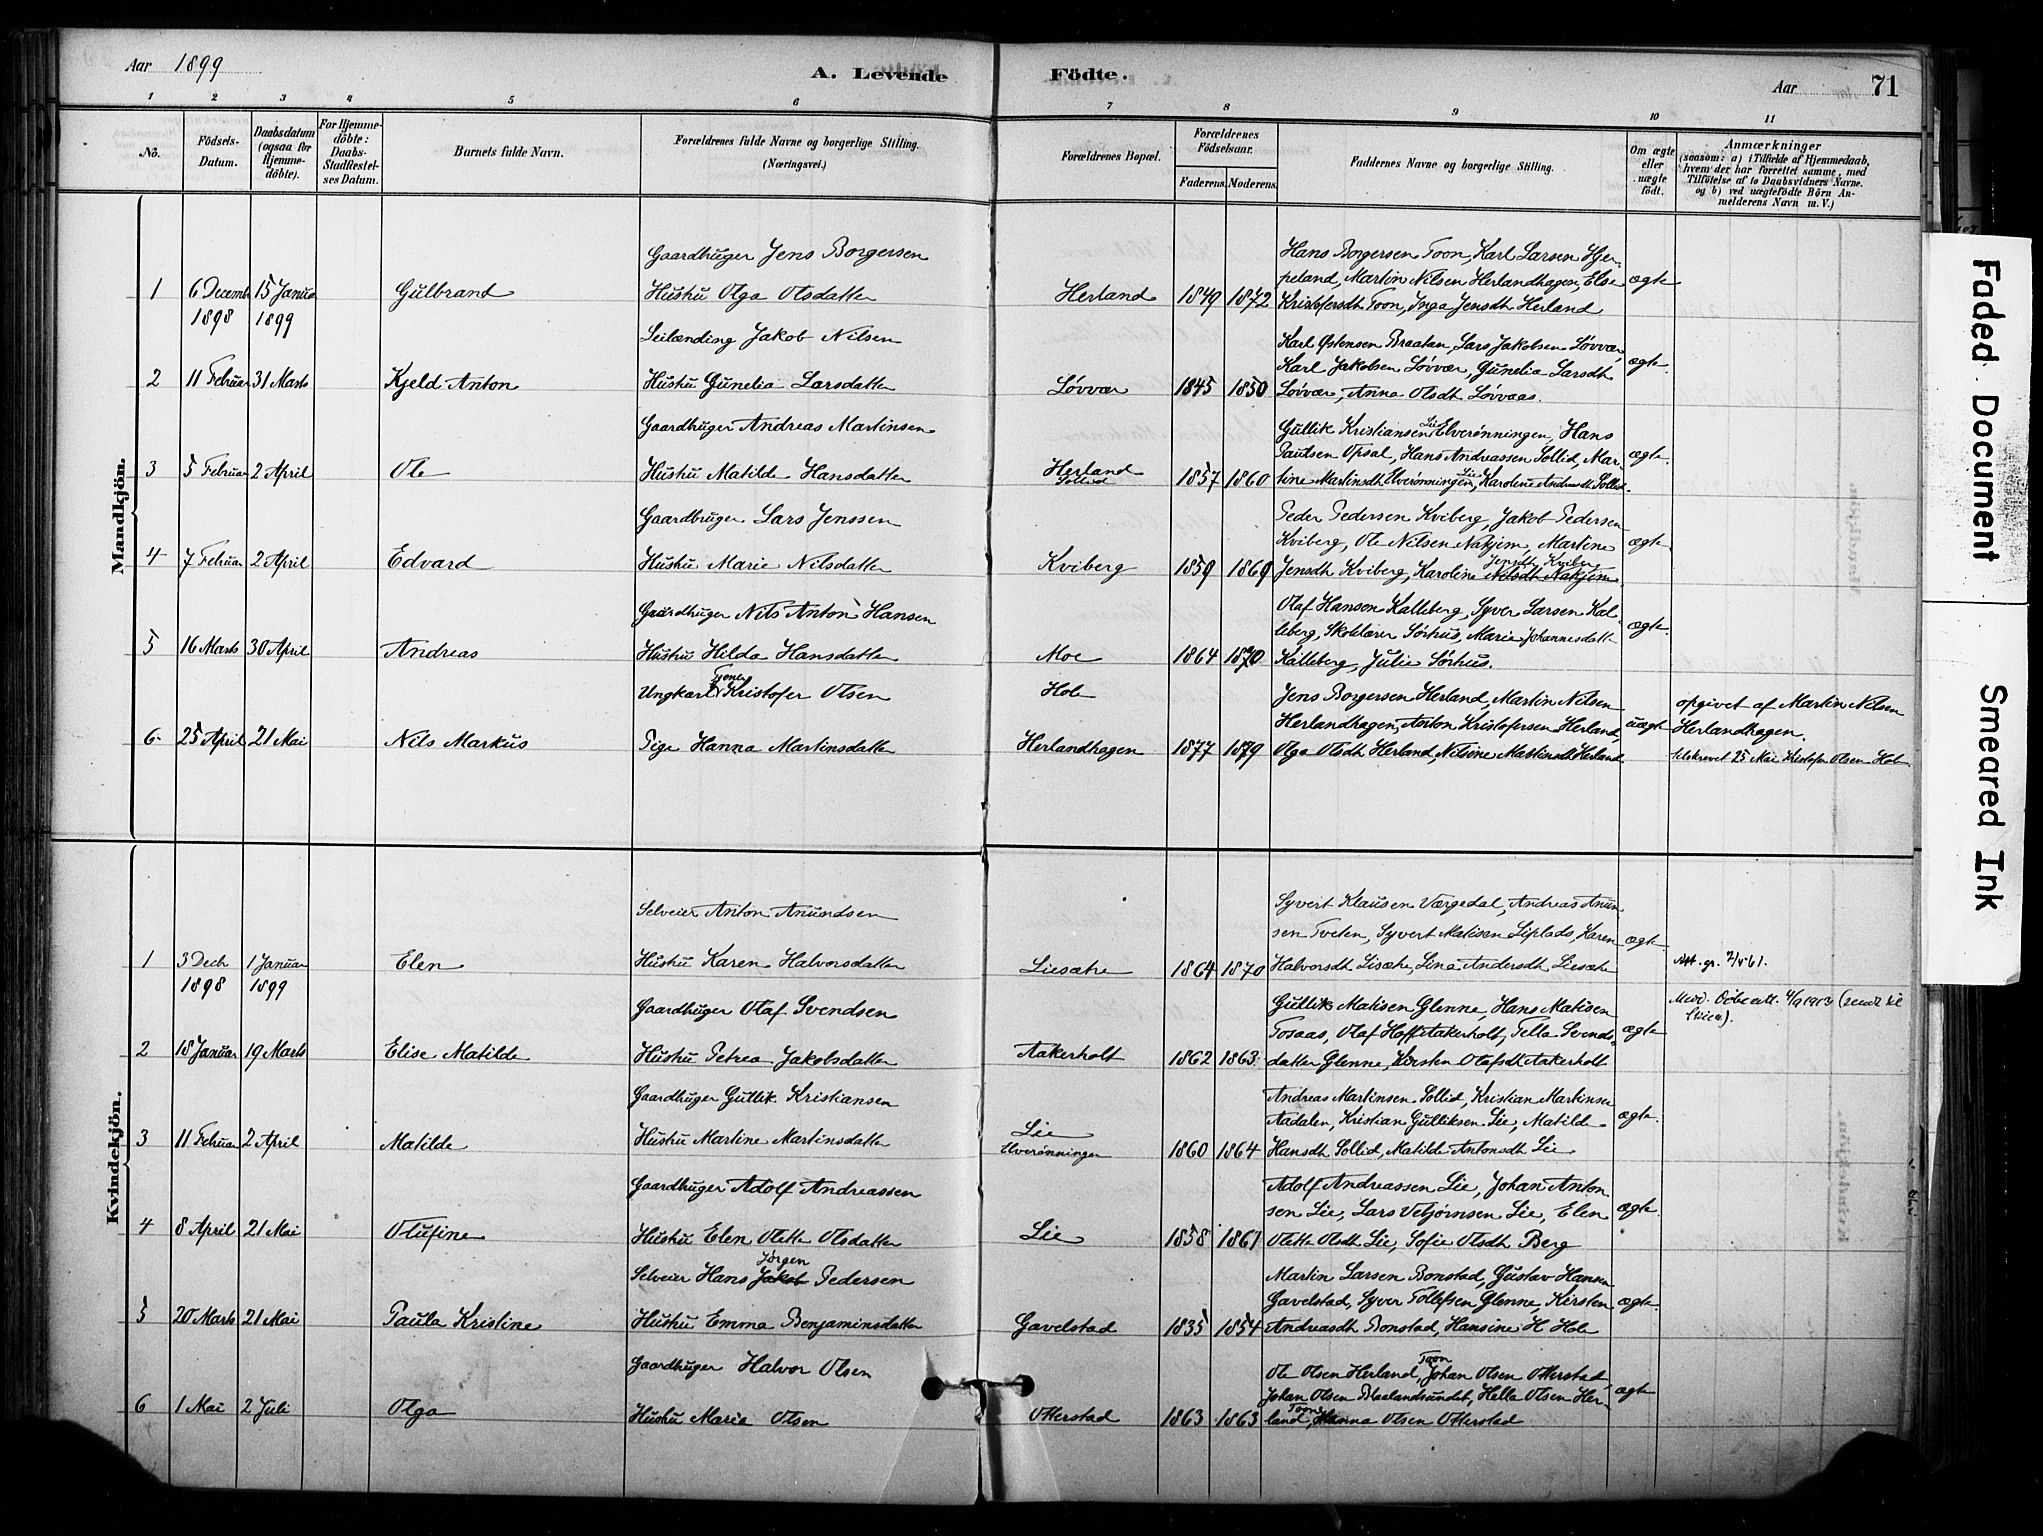 Aar 1899
A. Levende
Födte.
Aar
71
1 2 3 4 5 6 7 8 9 10 11
No.
Födsels-Datum.
Daabsdatum (ogsaa for Hjemme-döbte).
For Hjemme-döbte: Daabs-Stadfæstel-ses Datum.
Barnets fulde Navn.
Forældrenes fulde Navne og borgerlige Stilling.
(Næringsvei.)
Forældrenes Bopæl.
Forældrenes Födselsaar.
Faderens. Moderens.
Faddernes Navne og borgerlige Stilling.
Om ægte eller uægte födt.
Anmærkninger
(saasom: a) i Tilfælde af Hjemmedaab,
hvem der har forrettet samme, med
Tilföielse af to Daabsvidners Navne.
og b) ved uægtefödte Börn An-
melderens Navn m. V.)
Mandkjön.
Gaardbruger Jens Borgersen
Hans Borgersen Toon, Karl Larsen Hjer-
peland, Martin Nilsen Herlandhagen, Else
1 6 Decemb 15 Januar Gulbrand Hustru Olga Olsdatter Herland 1849 1872 Kristofersdt Toon, Inga Jensdt Herland ægte
1898 1899
Leilænding Jakob Nilsen
Karl Østensen Braatan, Lars Jakobsen Løvvær,
Karl Jakobsen Løvvær, Gunelia Larsdt
2 11 Februar 31 Marts Kjeld Anton Hustru Gunelia Larsdatter Løvvær 1845 1850 Løvvær, Anna Olsdt Løvvaas. ægte.
Gaardbruger Andreas Martinsen
Gullik Kristiansen Lie Elverønningen, Hans
Paulsen Opsal, Hans Andreassen Sollid, Mar-
3 5 Februar 2 April Ole Hustru Matilde Hansdatter Herland 1857 1860 tine Martinsdt Elverønningen Lie, Karoline Andreasdt Sollid. ægte.
Sollid
Gaardbruger Lars Jenssen
Peder Pedersen Kviberg, Jakob Pedersen
Kviberg, Ole Nilsen Nakjem, Martine
Jensdt Kviberg
4 7 Februar 2 April Edvard Hustru Marie Nilsdatter Kviberg 1859 1869 Jensdt Kviberg, Karoline Nilsdt Nakjem. ægte
Gaardbruger Nils Anton Hansen
Olaf Hansen Kalleberg, Syver Larsen Kal-
leberg, Skolelærer Sørhus, Marie Johannesdatter
5 16 Marts 30 April Andreas Hustru Hilda Hansdatter Moe 1864 1870 Kalleberg, Julie Sørhus. ægte.
Ungkarl Tjener Kristofer Olsen Hole
Jens Borgersen Herland, Martin Nilsen
Herlandhagen, Anton Kristofersen Herland
6. 25 April 21 Mai Nils Markus Pige Hanna Martinsdatter Herlandhagen 1877 1879 Olga Olsdt Herland, Nilsine Martinsdt Herland uægte
opgivet af Martin Nilsen
Herlandhagen.
tilskrevet 25 Mai Kristofer Olsen Hole
Kvindekjön.
Selveier Anton Anundsen
Syvert Klausen Værgedal, Andreas Anun
sen Tveten, Syvert Matisen Liplads, Karen
1 3 Decb 1 Januar Elen Hustru Karen Halvorsdatter Liesæter 1864 1870 Halvorsdt Lisæter, Lina Andersdt Liesæter ægte
1898 1899
Gaardbruger Olaf Svendsen
Gullik Matisen Glenne, Hans Matisen
Tosaas, Olaf Hoff Aakerholt, Tella Svends-
2 18 Januar 19 Marts Elise Matilde Hustru Petrea Jakobsdatter Aakerholt 1862 1863. datter Glenne, Kirsten Olafsdt Aakerholt ægte
Gaardbruger Gullik Kristiansen
Andreas Martinsen Sollid, Kristian Martinsen
Aadalen, Kristian Gulliksen Lie, Matilde
3 11 Februar 2 April Matilde Hustru Martine Martinsdatter Lie 1860 1864 Hansdt Sollid, Matilde Antonsdt Lie ægte.
Elverønningen
Gaardbruger Adolf Andreassen
Adolf Andreassen Lie, Johan Anton
sen Lie, Lars Vebjørnsen Lie, Elen
4 8 April 21 Mai Olufine Hustru Elen Olette Olsdatter Lie 1858 1861 Olette Olsdt Lie, Sofie Olsdt Berg ægte.
Jørgen
Selveier Hans Jakob Pedersen
Martin Larsen Bonstad, Gustav Hansen
Gavelstad, Syver Tollefsen Glenne, Kirsten
5 20 Marts 21 Mai Paula Kristine Hustru Emma Benjaminsdatter Gavelstad 1835 1854 Andreasdt Bonstad, Hansine H Hole ægte.
Gaardbruger Halvor Olsen
Ole Olsen Herland, Toon Johan Olsen Otterstad
Johan Olsen Blaalandsundet, Hella Olsen Her-
6 1 Mai 2 Juli Olga Hustru Maria Olsen Otterstad 1863 1863 land, Toon Hanna Olsen Otterstad ægte
Faded Document
Smeared Ink